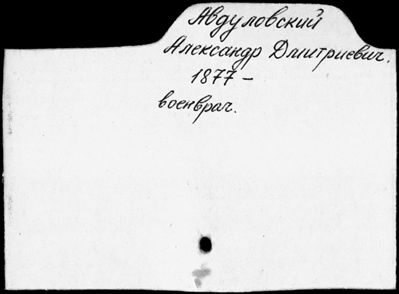 Авдуловский
Александр Дмитриевич.
1877 –
военврач.